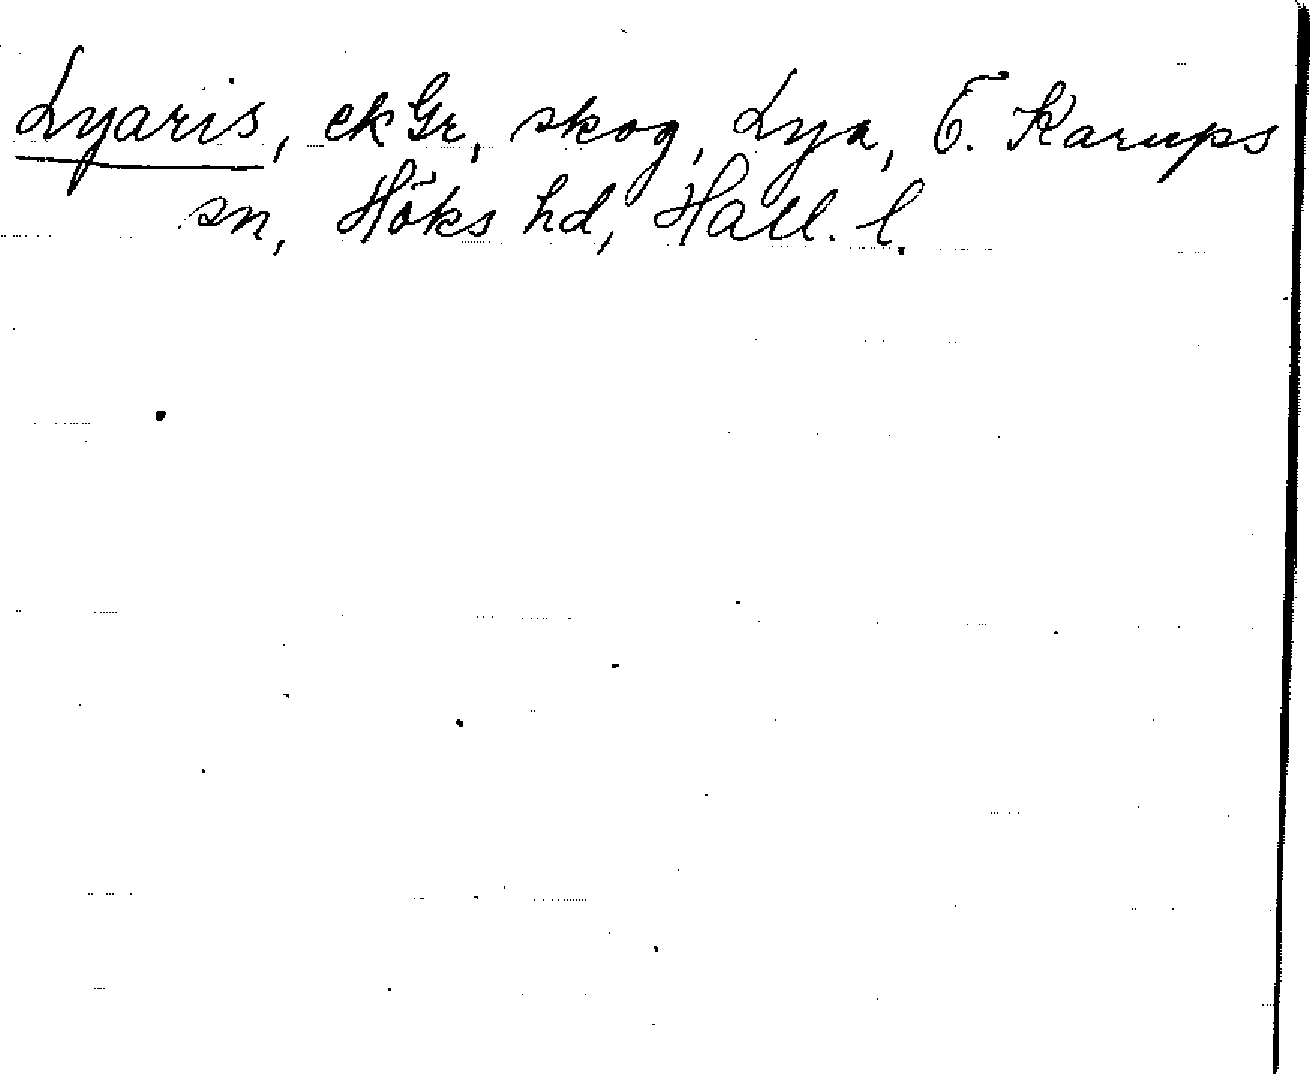 Lyaris, ekGr, skog, Lya, Ö. Karups
sn, Höks hd, Hall. l.